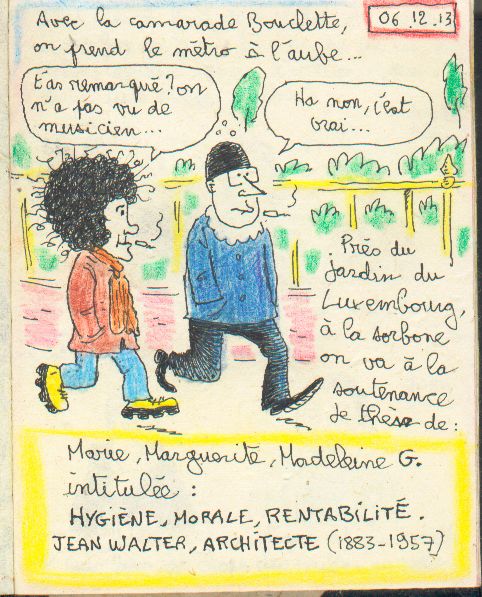 Avec la camarade Bouclette,
on prend le métro à l'aube...
06.12.13
T'as remarqué? on
n'a pas vu de
musicien...
Ha non, c'est
vrai...
Près du
jardin du
Luxembourg,
à la sorbone
on va à la
soutenance
de thèse de:
Marie, Marguerite, Madeleine G.
intitulée :
HYGIÈNE, MORALE, RENTABILITÉ.
JEAN WALTER, ARCHITECTE (1883-1957)